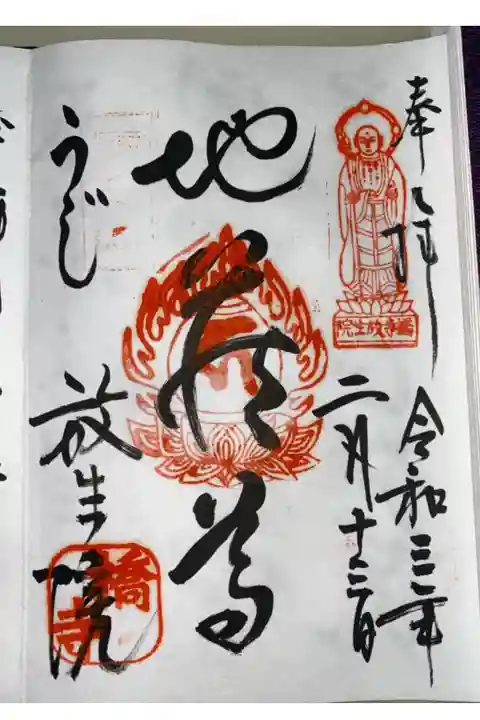 奉拝
橋寺放生院
令和三年
二月十三日
地蔵尊
うじ
放生院
橋寺